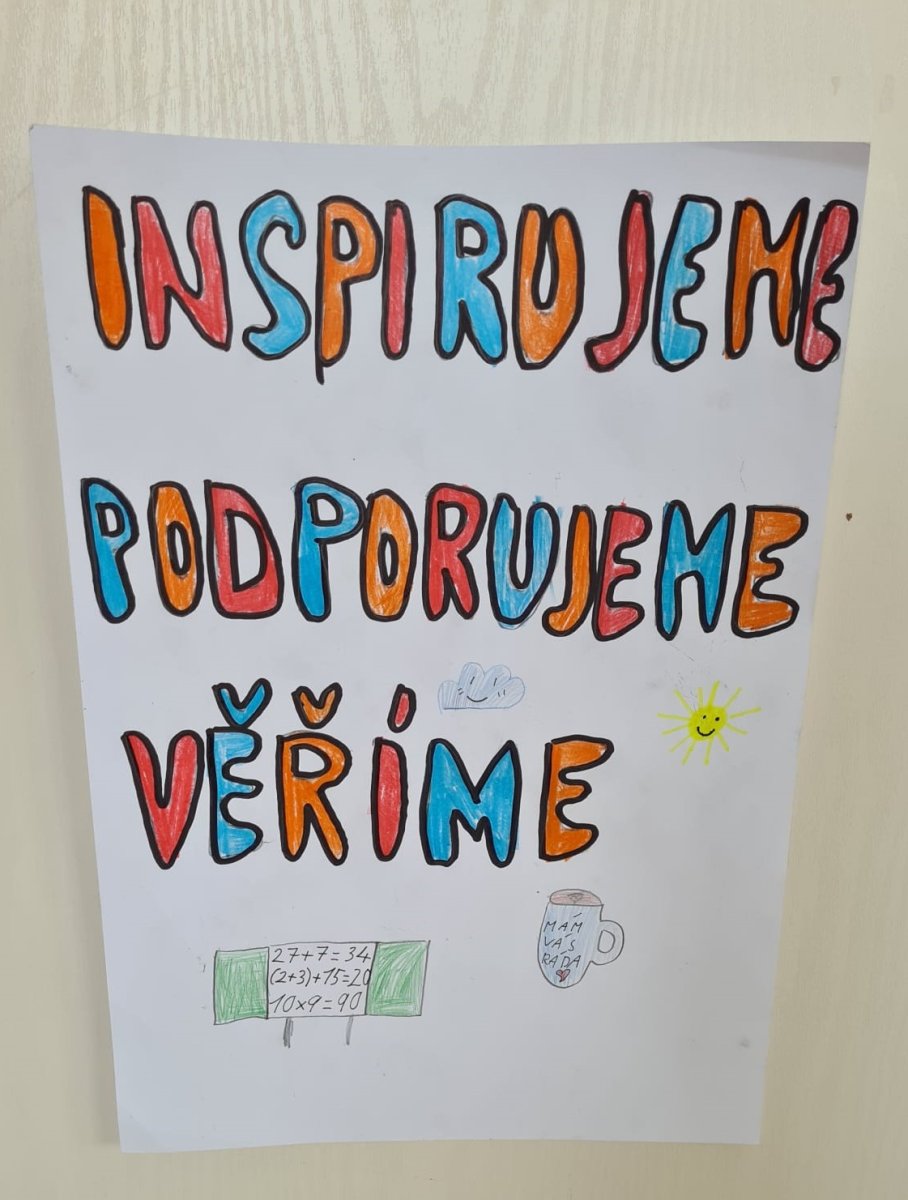 INSPIRUJEME
PODPORUJEME
VĚŘÍME
27+7=34
(2+3)+15=20
10x9=90
MÁM
VÁS
RÁDA